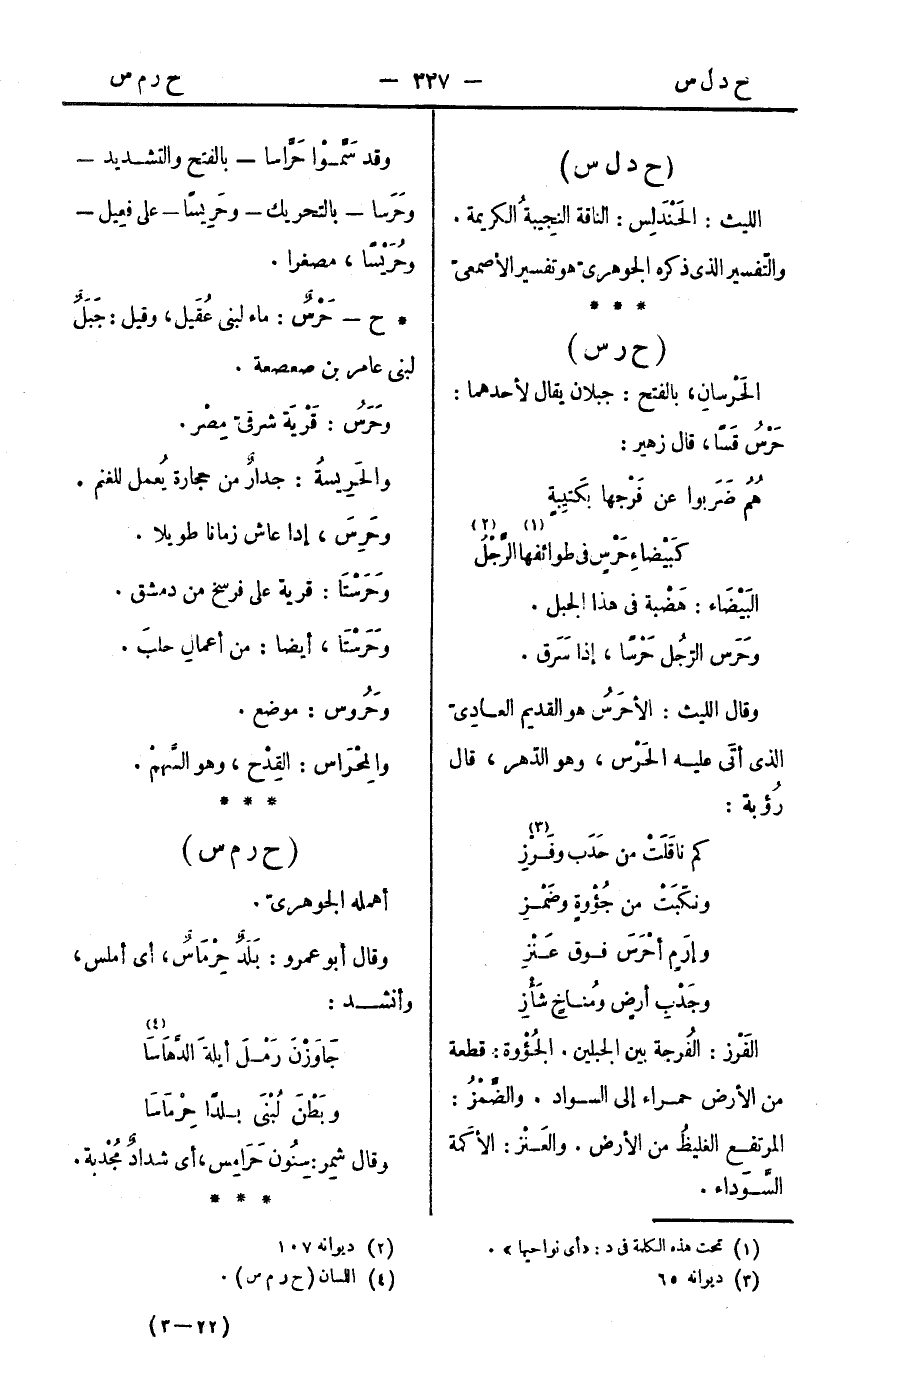 ح د ل س — ٣٢٧ — ح ر م س
(ح د ل س)
الليث : الحَنْدَلِس : الناقة النجيبةُ الكريمة .
والتّفسير الذى ذكره الجوهرىّ هو تفسير الأصمعىّ
* * *
(ح ر س)
الحَرْسانِ، بالفتح : جبلان يقال لأحدهما :
حَرْسُ قَسًا، قال زهير :
هُمُ ضَرَبوا عن فَرْجها بكَتِيبةٍ
كَبَيْضاءِ حَرْسٍ فى طوائفها الرَّجْلُ (١) (٢)
البَيْضَاء : هَضْبة فى هذا الجبل .
وحَرَس الرّجُل حَرْسًا ، إذا سَرَق .
وقال الليث : الأحْرَسُ هو القديم العـادىّ
الذى أتَى عليـه الحَرْس ، وهو الدّهر ، قال
رُؤبة :
كم ناقَلَتْ من حَدَب وفَـرْزِ (٣)
ونكّبَتْ من جُؤْوةٍ وضَمْـزِ
وإرَمٍ أحْرَسَ فـوق عَـنْزِ
وجَدْبِ أرضٍ ومُناخٍ شَأْزِ
الفَرْز : الفُرجة بين الجبلين . الجُؤْوة : قطعة
من الأرض حمـراء إلى السـواد . والضَّمْزُ :
المرتفـع الغليظُ من الأرض . والعَـنْز : الأكَمة
السَّـوداء .
وقد سَمَّـوْا حَرَّاسا – بالفتح والتشـديد –
وحَرَسا – بالتحريك – وحَرِيسًا – على فعيل –
وحُرَيْسًا ، مصغرا .
* ح – حَرْسٌ : ماء لبنى عُقَيل، وقيل : جَبَلٌ
لبنى عامر بن صعصعة .
وحَرَسُ : قَرْيَة شرقىّ مِصْر .
والحَرِيسةُ : جدارٌ من حجارة يُعمل للغنم .
وحَرِسَ ، إذا عاش زمانا طويلا .
وحَرَسْتَا : قرية على فرسخ من دمشق .
وحَرَسْتَا ، أيضا : من أعمال حلبَ .
وحَرُوس : موضع .
والمِحْرَاس : القِدْح ، وهو السَّهمْ .
* * *
(ح ر م س)
أهمله الجوهرىّ .
وقال أبو عمرو : بَلَدٌ حِرْمَاسٌ، أى أملس،
وأنشـــد :
جَاوَزْنَ رَمْـلَ أيلةَ الدَّهَاسَا (٤)
وبَطْنَ لُبْنَى بـلدًا حِرْمَاسَا
وقال شمِر: سِنُون حَرَامِس، أى شدادٌ مُجْدبة .
* * *
(١) تحت هذه الكلمة فى د : «أى نواحيها» .
(٢) ديوانه ١٠٧
(٣) ديوانه ٦٥
(٤) اللسان (ح ر م س) .
(٢٢–٣)